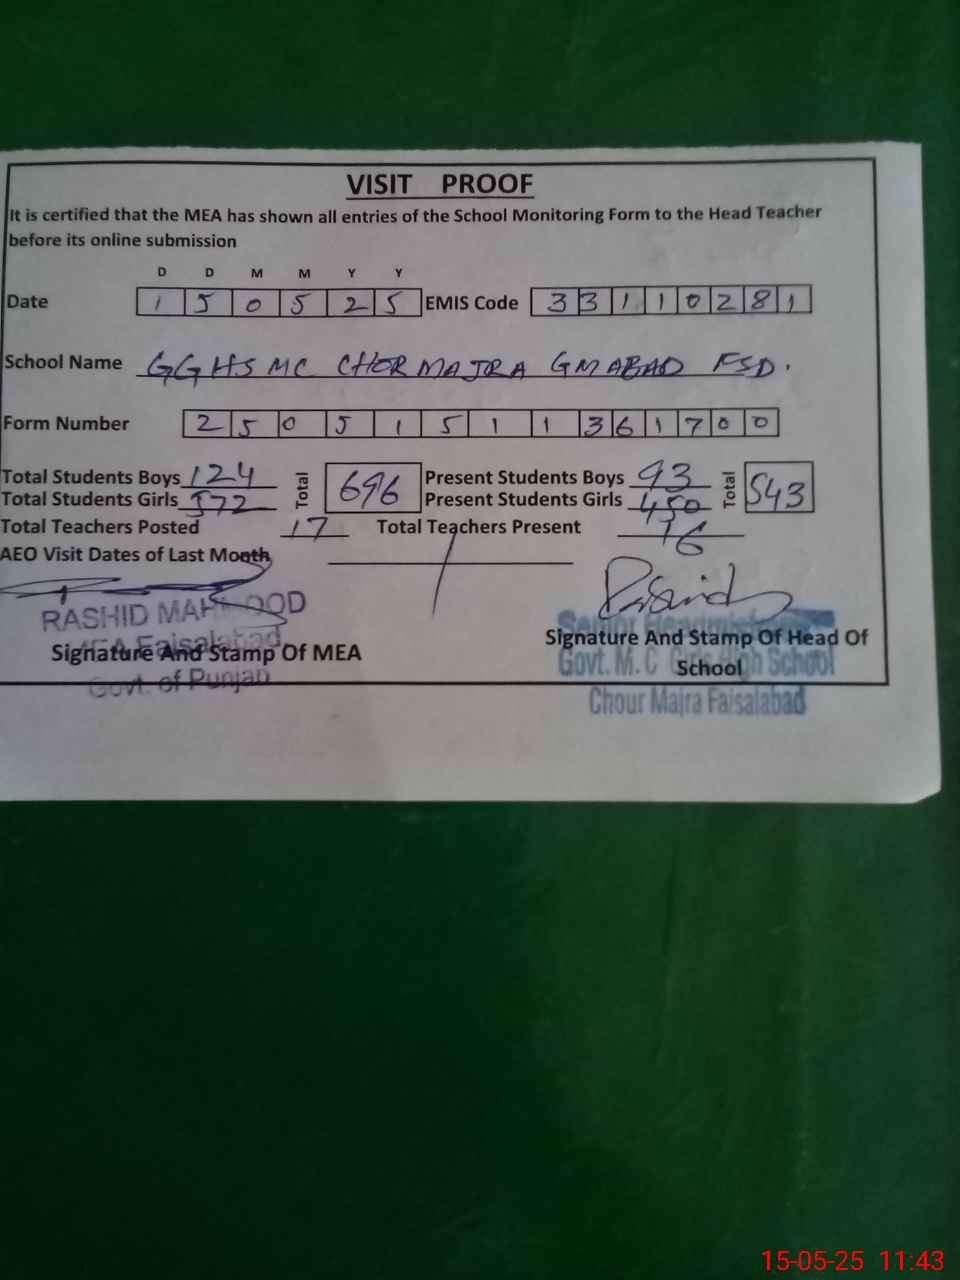 VISIT PROOF
It is certified that the MEA has shown all entries of the School Monitoring Form to the Head Teacher
before its online submission
D D M M Y Y
Date 1 5 0 5 2 5 EMIS Code 3 3 1 1 0 2 8 1
School Name GGHS MC CHOR MAJRA GMABAD FSD.
Form Number 2 5 0 5 1 5 1 1 3 6 1 7 0 0
Total Students Boys 124 Total 696 Present Students Boys 93 Total 543
Total Students Girls 572 Present Students Girls 450
Total Teachers Posted 17 Total Teachers Present 16
AEO Visit Dates of Last Month
RASHID MAHMOOD
MEA Faisalabad
Govt. of Punjab
Signature And Stamp Of MEA
Senior Headmistress
Govt. M.C Girls High School
Chour Majra Faisalabad
Signature And Stamp Of Head Of
School
15-05-25 11:43